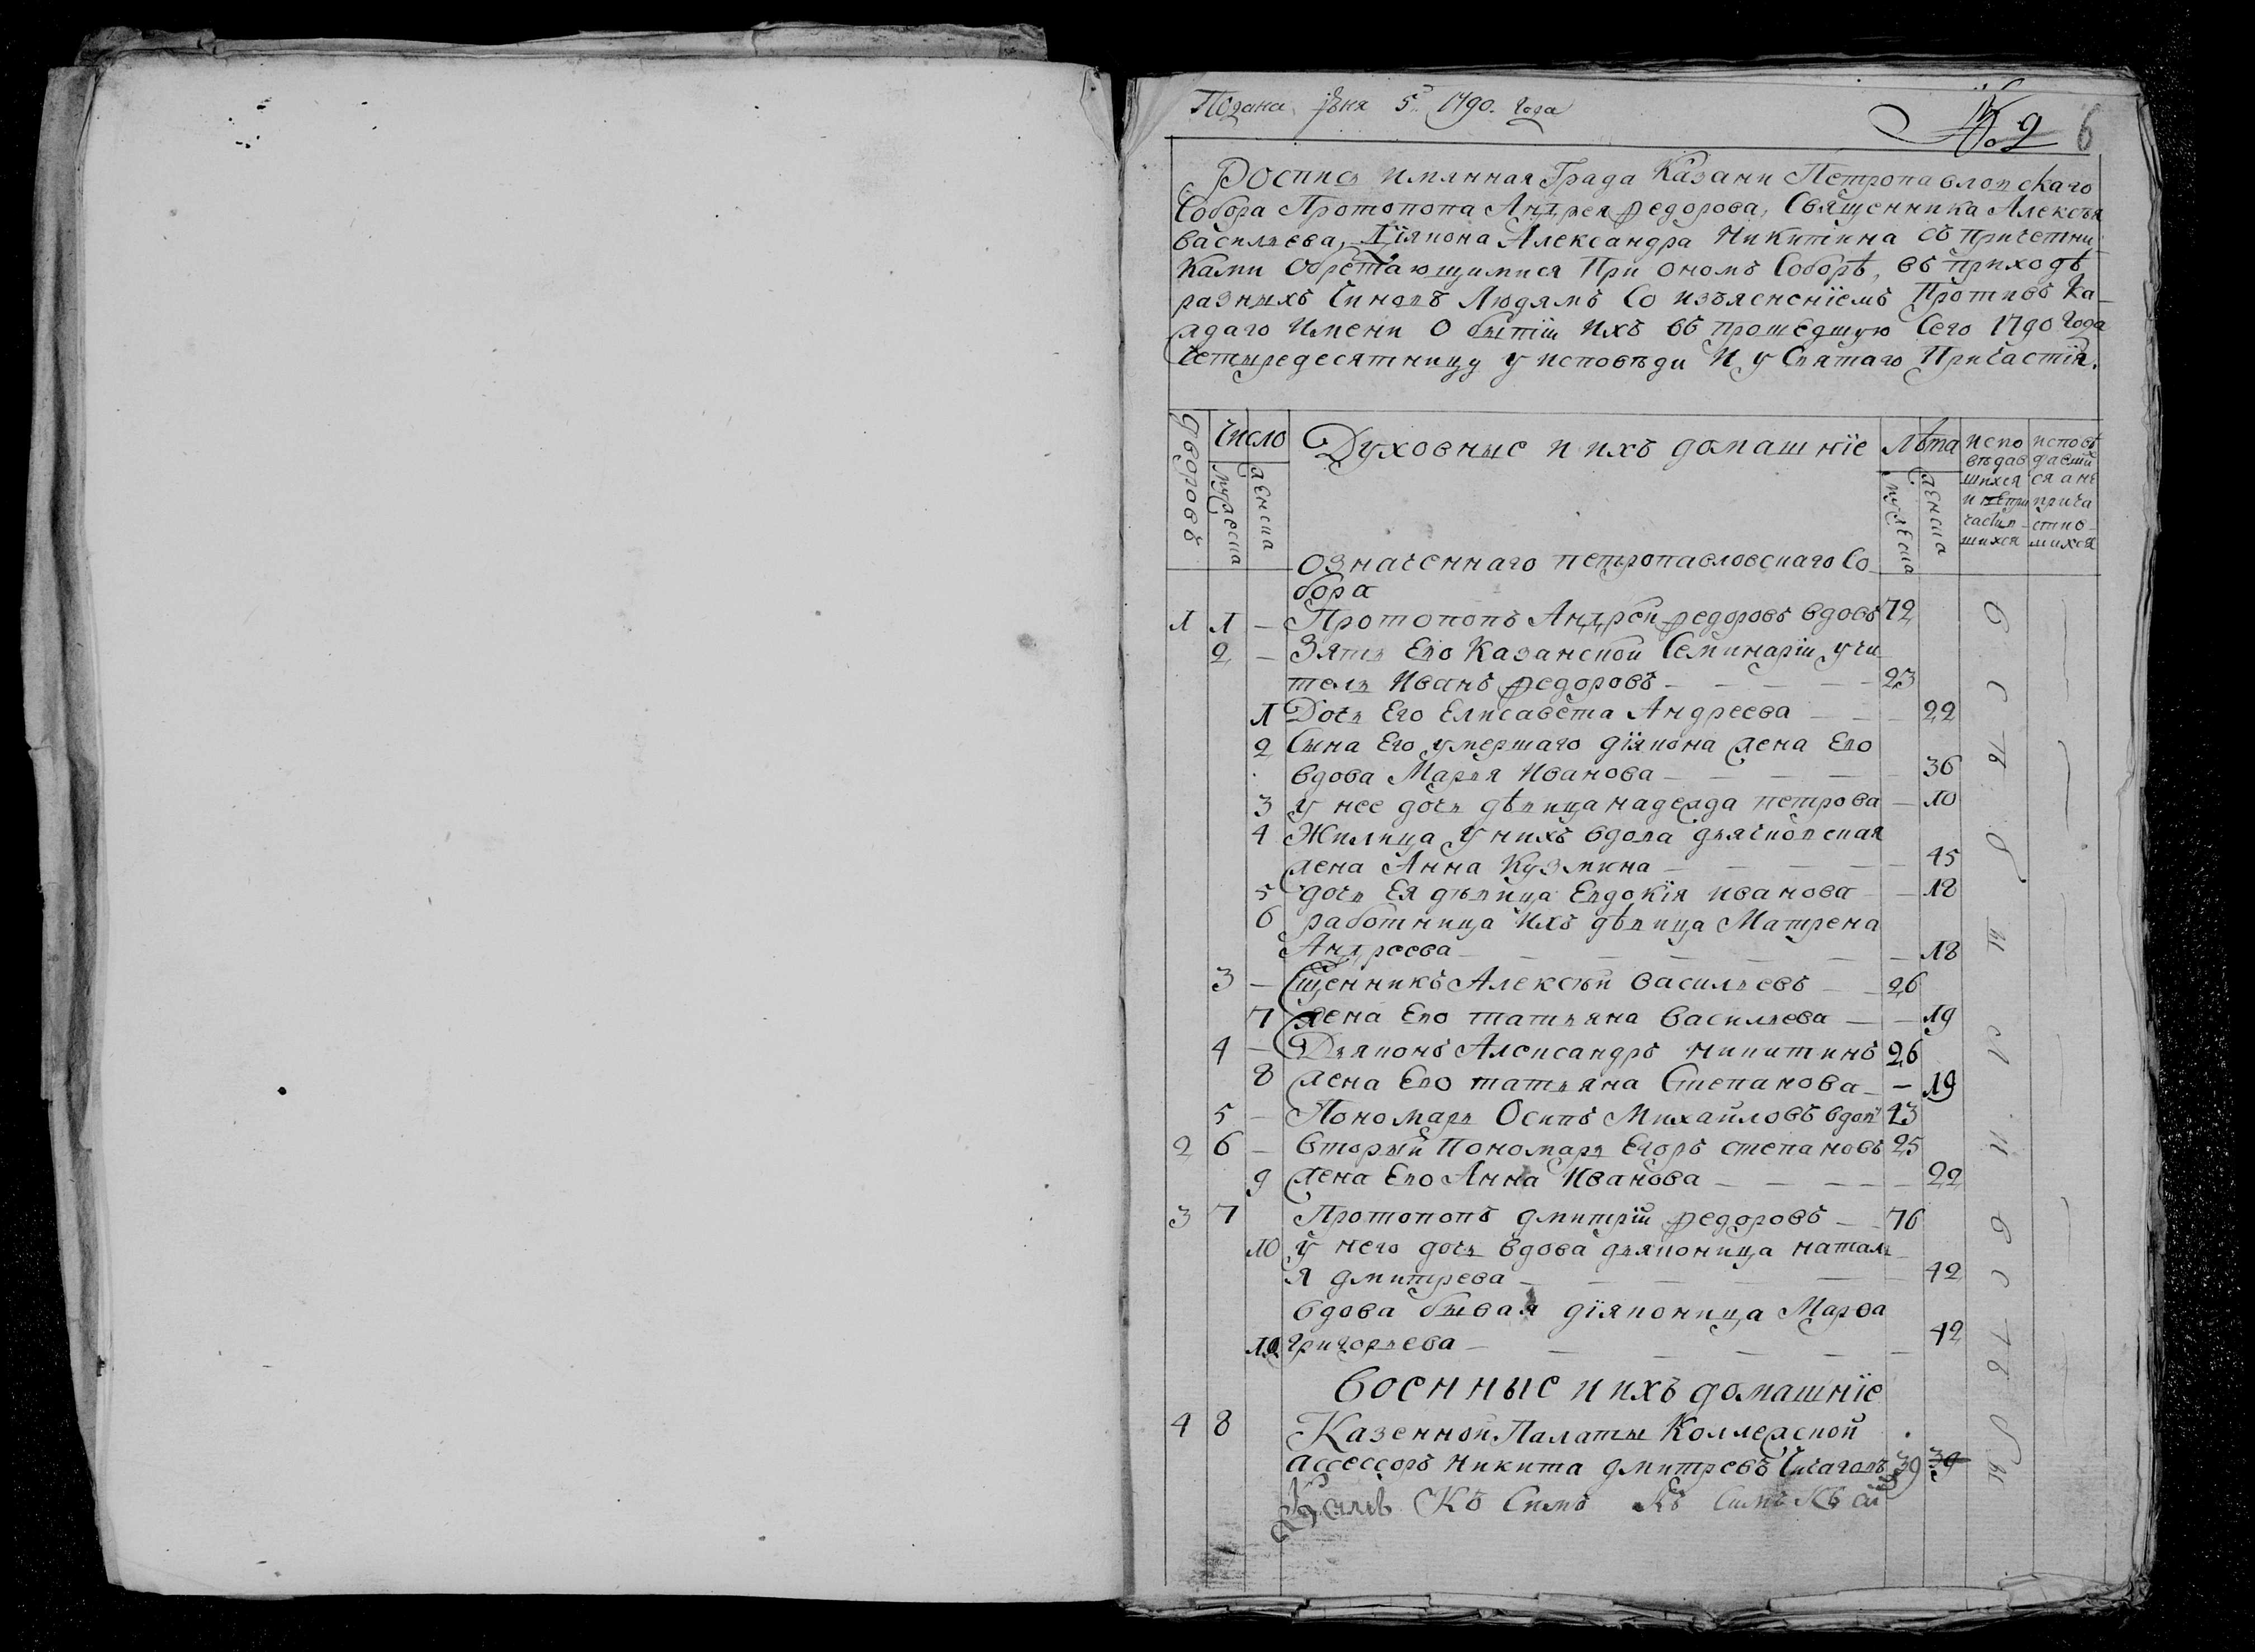 Подана Іюня 5 1790. года
№ 9 6
Роспись имянная Града Казани Петропавловскаго
Собора Протопопа Андрея Федорова, Священника Алексѣя
Васильева, Діякона Александра Никитина съ причетни
ками обретающимися при ономъ Соборѣ, въ приходѣ
разныхъ чиновъ людямъ со изъясненіемъ противъ ка
ждаго имени о бытіи ихъ въ прошедшую сего 1790 года
четыредесятницу у исповѣди и у Святаго Причастія.
дворовъ
Число
мужеска
женска
Духовные и ихъ домашніе
Лѣта
мужеска
женска
испо
вѣдав
шихся
и непри
частив
шихся
исповѣ
давши
ся а не
прича
стив
шихся
означеннаго петропавловскаго Со
бора
1 1 — Протопопъ Андрей Федоровъ вдовъ 72
2 — Зять Его Казанской Семинаріи учи
тель Иванъ Федоровъ — — — — 23
1 Дочь Его Елисавета Андреева — — 22
2 Сына Его умершаго діякона жена Его
вдова Марья Иванова — — — 36
3 у нее дочь дѣвица надежда петрова — 10
4 Жилица у нихъ вдова дьячковская
жена Анна Кузмина — — — 45
5 дочь Ея дѣвица Евдокія иванова — 18
6 работница ихъ дѣвица Матрена
Андреева — — — — — 18
3 — Сщенникъ Алексѣй Васильевъ — 26
7 жена Его татьяна Васильева — — 19
4 — Дьяконъ Александръ никитинъ 26
8 жена Его татьяна Степанова — — 19
5 — Пономарь Осипъ Михайловъ вдов 43
2 6 — вторый Пономарь Егоръ степановъ 25
9 жена Его Анна Иванова — — — — 22
3 7 Протопопъ дмитрій Федоровъ — 76
10 у него дочь вдова дьяконица наталь
я дмитрева — — — — 42
вдова бывая діяконица Марѳа
10 григорьева — — — — — 42
военные и ихъ домашніе
4 8 Казенной Палаты Коллежской
ассессоръ Никита дмитревъ Чичаговъ 39 39
Къ Симъ Къ Симъ Къ си